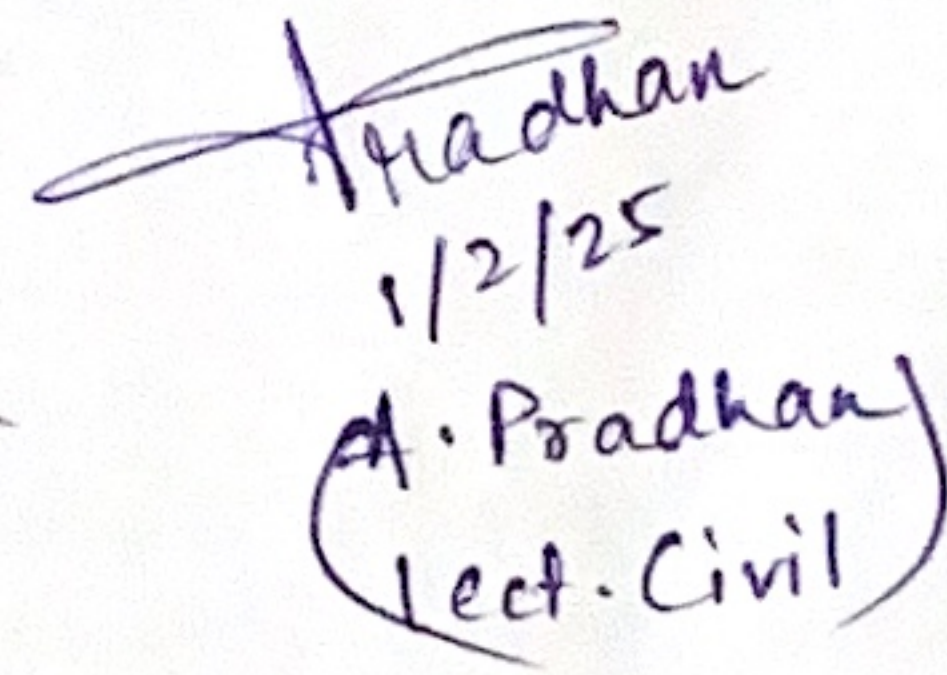 Pradhan
1/2/25
(A. Pradhan
Lect. Civil)